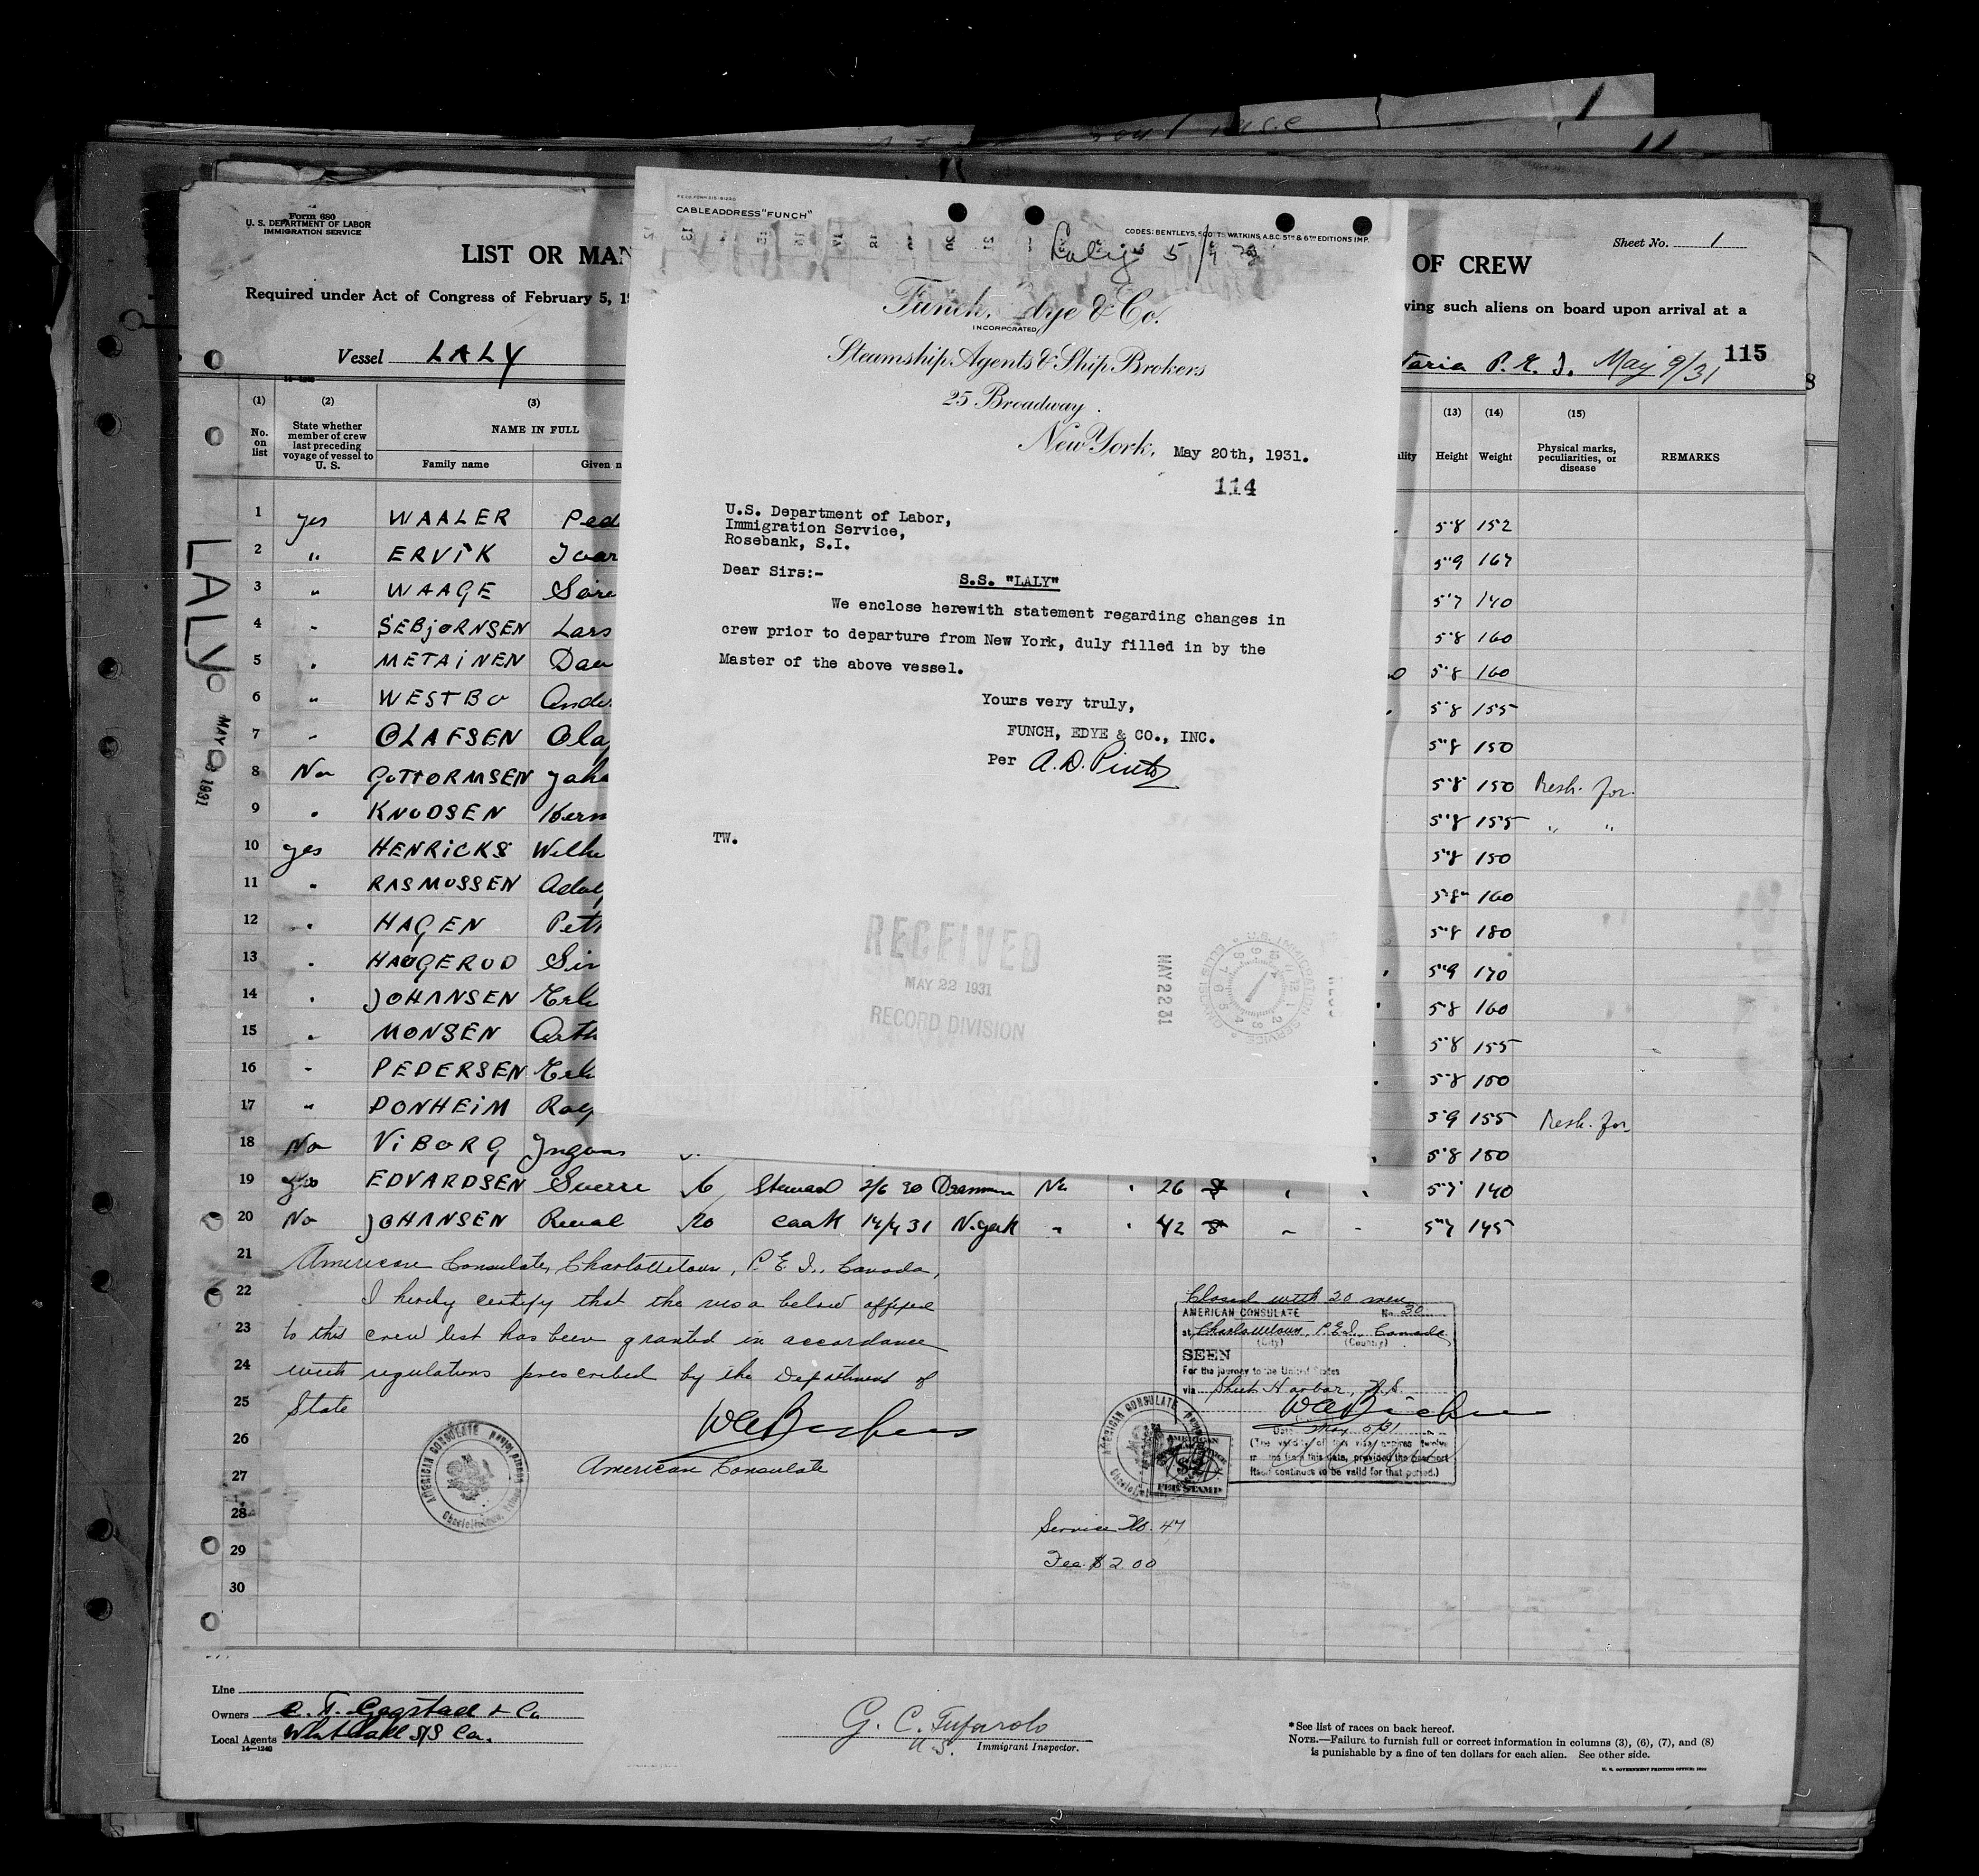 Form 680
U. S. DEPARTMENT OF LABOR
IMMIGRATION SERVICE
LIST OR MAN
OF CREW
Sheet No. 1
Required under Act of Congress of February 5, 1
ving such aliens on board upon arrival at a
Vessel LALY
taria P. E. I. May 9/31
115
CABLE ADDRESS "FUNCH"
CODES: BENTLEYS, SCOTTS WATKINS, A.B.C. 5TH & 6TH EDITIONS IMP.
Funch, Edye & Co.
INCORPORATED
Steamship Agents & Ship Brokers
25 Broadway.
New York, May 20th, 1931.
114
U.S. Department of Labor,
Immigration Service,
Rosebank, S.I.
Dear Sirs:-
S.S. "LALY"
We enclose herewith statement regarding changes in
crew prior to departure from New York, duly filled in by the
Master of the above vessel.
Yours very truly,
FUNCH, EDYE & CO., INC.
Per A. D. Pinto
TW.
RECEIVED
MAY 22 1931
RECORD DIVISION
MAY 22 31
U.S. IMMIGRATION SERVICE
(1) (2) (3) (13) (14) (15)
No. on list
State whether member of crew last preceding voyage of vessel to U. S.
NAME IN FULL
Family name Given n
lity Height Weight
Physical marks, peculiarities, or disease
REMARKS
LALY
MAY 1931
1 yes WAALER Ped 5'8 152
2 " ERVIK Ivar 5'9 167
3 " WAAGE Sore 5'7 140
4 " SEBJORNSEN Lars 5'8 160
5 " METAINEN Dav 5'8 160
6 " WESTBO Ande 5'8 155
7 " OLAFSEN Ola 5'8 150
8 No GOTTORMSEN Joha 5'8 150 Resh. for.
9 " KNUDSEN Hern 5'8 155 " "
10 yes HENRICKS Wilhe 5'8 150
11 " RASMUSSEN Adol 5'8 160
12 " HAGEN Pett 5'8 180
13 " HAUGEROD Sin 5'9 170
14 " JOHANSEN Erli 5'8 160
15 " MONSEN Arth 5'8 155
16 " PEDERSEN Erli 5'8 150
17 " DONHEIM Ralf 5'9 155 Resh. for
18 No VIBORG Ingva 5'8 150
19 yes EDVARDSEN Sverre 16 Steward 2/6 30 Drammen No " 26 8 " " 5'7 140
20 No JOHANSEN Reval 20 Cook 14/4 31 N.york " " 42 8 " " 5'7 145
21 American Consulate, Charlottetown, P. E. I., Canada,
22 I hereby certify that the visa below affixed
23 to this crew list has been granted in accordance
24 with regulations prescribed by the Department of
25 State
26
27 American Consulate
28
29
30
AMERICAN CONSULATE
Closed with 20 men
AMERICAN CONSULATE No. 30
at Charlottetown, P.E.I., Canada
(City) (Country)
SEEN
For the journey to the United States
via Sheet Harbor, N.S.
Date
(The validity of this visa expires twelve
months from this date, provided the passport
itself continues to be valid for that period.)
AMERICAN CONSULATE
AMERICAN
$2
FEE STAMP
Service No. 47
Fee $2.00
Line
Owners
Local Agents
14—1240
G. C. Tufarolo
U.S. Immigrant Inspector.
*See list of races on back hereof.
NOTE.—Failure to furnish full or correct information in columns (3), (6), (7), and (8)
is punishable by a fine of ten dollars for each alien. See other side.
U. S. GOVERNMENT PRINTING OFFICE